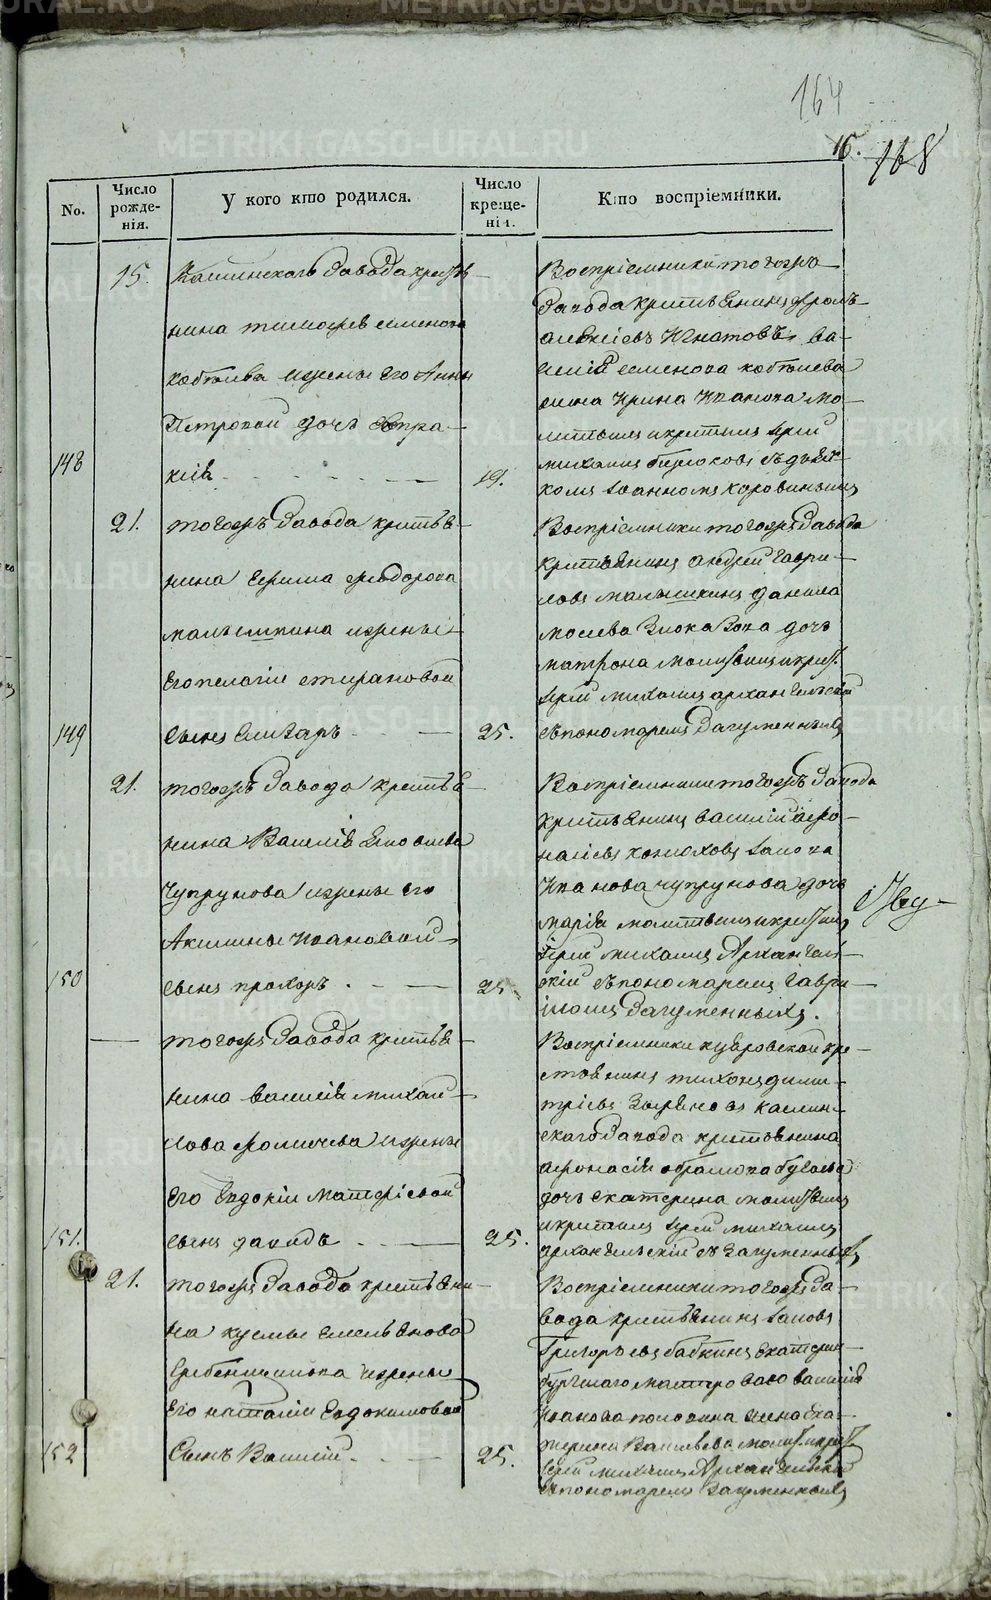 METRIKI.GASO-URAL.RU
164
15. 168
No.
Число рожде-нія.
У кого кто родился.
Число креще-нія.
Кто воспріемники.
15. Каслинскаго завода кресть-
нина тимофея семенова
кобелева и жены его Анны
Петровой дочь Евпра-
148
ксія
19.
Воспріемники тогожъ
завода крестьянинъ
алексіевъ Игнатовъ ва-
силій семенова кобелева
жена Ирина Иванова мо-
литвилъ и крестилъ Іерей
михаилъ бирюковъ съ дьяч-
комъ Іоанномъ коровинымъ
21. тогожъ завода крестья-
нина Ефима федорова
малышкина и жены
Его пелагіи степановой
149
сынъ Елизаръ
25.
Воспріемники тогожъ завода
крестьянинъ андрей гаври-
ловъ малышкинъ данила
мосеева Злоказова дочь
матрона молитвилъ и крест.
Іерей михаилъ архангельскій
съ пономаремъ Загуменныхъ
21. тогожъ завода крестья-
нина Василія Яковлева
Чупрунова и жены его
Акилины Ивановой
150
сынъ прохоръ
25.
Воспріемники тогожъ завода
крестьянинъ василій афо-
насіевъ конюховъ Іакова
Иванова чупрунова дочь
марія молитвилъ и крестилъ
Іерей михаилъ Архангель-
скій съ пономаремъ Гаври-
иломъ Загуменныхъ.
тогожъ завода крестья-
нина василія михай-
лова фомичева и жены
Его Евдокіи Матфіевой
151.
сынъ давидъ
25.
Воспріемники
крестьянинъ тихонъ дими-
тріевъ Зырянов каслин-
скаго завода крестьянина
афонасія абрамова бугаева
дочь екатерина молитвилъ
и крестилъ Іерей михаилъ
архангельскій съ Загуменныхъ
21. тогожъ завода крестьяни-
на кузмы емельянова
гребенщикова и жены
Его наталіи Евдокимовой
152
Сынъ Василій
25.
Воспріемники тогожъ за-
вода крестьянинъ Іаковъ
Григорьевъ бабкинъ Екатерин-
бургскаго мастерового василія
Иванова жена Ека-
терина Васильева молит. и крест.
Іерей михаилъ Архангельскій
съ пономаремъ Загуменныхъ